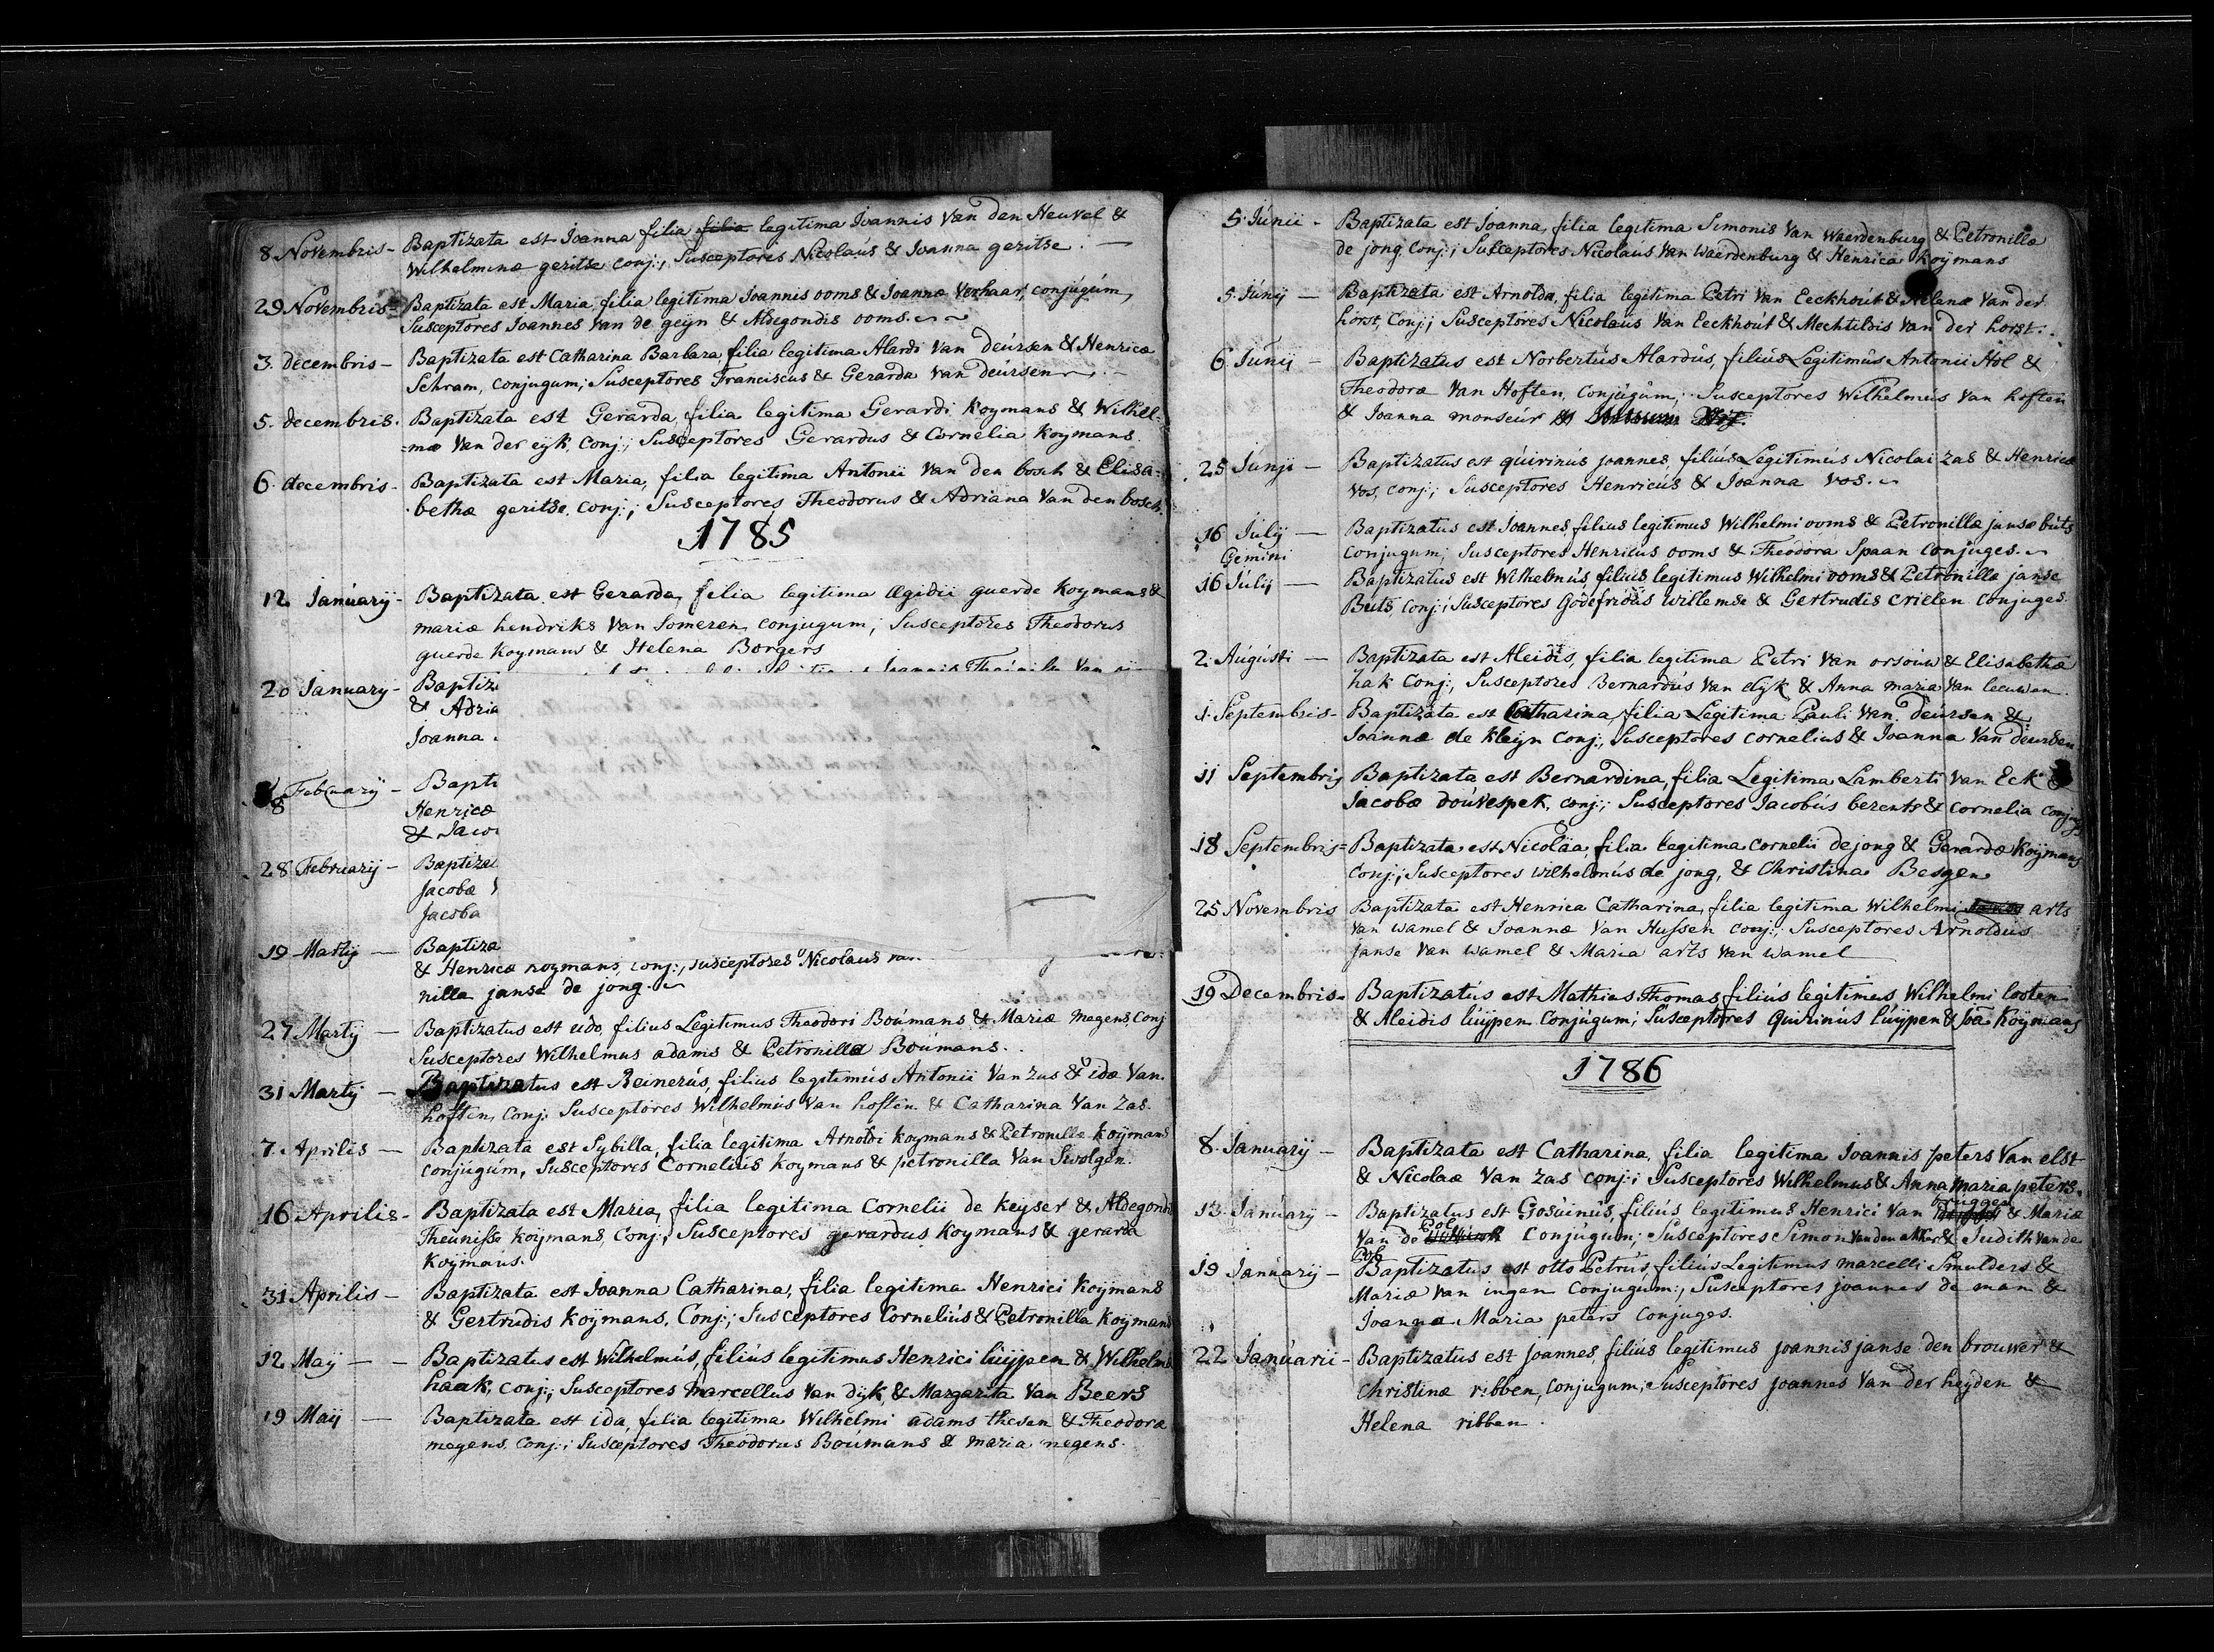 8 Novembris - Baptizata est Joanna filia filia legitima Joannis Van den Heuvel &
Wilhelminæ geritse conj:, Susceptores Nicolaús & Joanna geritse. —
29 Novembris - Baptizata est Maria, filia legitima Joannis ooms & Joannæ Verhaar, conjúgúm,
Susceptores Joannes Van de geijn & Aldegondis ooms.
3. decembris - Baptizata est Catharina Barbara, filia legitima Alardi Van deúrsen & Henricæ
Schram, conjugum; Susceptores Franciscus & Gerarda Van deursen
5. decembris. Baptizata est Gerarda, filia legitima Gerardi Koymans & Wilhel-
=mæ Van der eyk, Conj:; Susceptores Gerardus & Cornelia Koymans.
6. decembris - Baptizata est Maria, filia legitima Antonii Van den bosch & Elisa=
bethæ geritse. conj:; Susceptores Theodorus & Adriana Van den bosch.
1785
12 Janúarij - Baptizata est Gerarda, filia legitima Ægidii guerde Koymans &
mariæ hendriks Van Someren, conjugum; Susceptores Theodorus
guerde Koymans & Helena Borgers
20 January - Baptiz
& Adria
Joanna
8 February - Bapti
Henricæ
& Jaco
28 Februarij - Baptizat
Jacobæ
Jacoba
19 Martij — Baptiza
& Henricæ Koymans, conj:, Susceptores Nicolaus
nilla janse de jong.
27 Martij — Baptizatus est udo, filius Legitimus Theodori Boúmans & Mariæ megens, Conj
Susceptores Wilhelmus adams & Petronilla Boúmans..
31 Martij — Baptizatus est Reinerús, filius legitimús Antonii Van zas & idæ Van
hoften, Conj: Susceptores Wilhelmús Van hoften & Catharina Van Zas.
7. Aprilis — Baptizata est Sybilla, filia legitima Arnoldi Koymans & Petronillæ Koijmans
conjugúm, Susceptores Cornelius Koymans & petronilla Van Swolgen.
16 Aprilis - Baptizata est Maria, filia legitima Cornelii de Keyser & Aldegond
Theunisse Koijmans, Conj:, Susceptores gerardus Koymans & gerarda
Koijmans.
31 Aprilis — Baptizata est Joanna Catharina, filia legitima Henrici Koijmans
& Gertrudis Koijmans, Conj:; Susceptores Cornelius & Petronilla Koijmans
12 Maij — — Baptizatus est Wilhelmús, filiús legitimus Henrici lúijpen & Wilhelmæ
haak, conj:; Susceptores Marcellus Van dijk, & Margarita Van Beers
19 Maij — Baptizata est ida, filia legitima Wilhelmi adams thesen & Theodora
megens, conj:; Susceptores Theodorus Boúmans & maria megens.
5. Júnii - Baptizata est Joanna, filia legitima Simonis Van Waerdenburg & Petronillæ
de jong, conj:; Susceptores Nicolaús Van Waerdenburg & Henrica Koijmans
5. Júnij — Baptizata est Arnolda, filia legitima Petri Van Eeckhoút & Helenæ Van der
horst, Conj:; Susceptores Nicolaús Van Eeckhoút & Mechtildis Van der horst.
6 Júnij — Baptizatus est Norbertús Alardús, filiús Legitimús Antonii Hol &
Theodoræ Van Hoften, Conjúgúm, Susceptores Wilhelmús Van hoften
& Joanna monseúr &
25 Júnji — Baptizatus est qúirinús joannes, filiús Legitimús Nicolai zas & Henricæ
vos, conj:; Susceptores Henricús & Joanna vos.
16 Júlij — Baptizatus est Joannes, filius legitimus Wilhelmi ooms & Petronillæ janse búts
Gemini Conjugum; Susceptores Henricus ooms & Theodora Spaan Conjuges.
16 Júlij — Baptizatus est Wilhelmús, filiús legitimus Wilhelmi ooms & Petronillæ janse
Buts, conj:; Susceptores Godefridús willemse & Gertrudis crielen conjuges.
2. Aúgústi — Baptizata est Aleidis, filia legitima Petri Van orsoúw & Elisabethæ
hak Conj:, Susceptores Bernardús Van dijk & Anna maria Van leeuwen.
1. Septembris - Baptizata est Catharina, filia Legitima Pauli Van deúrsen &
Joannæ de kleyn Conj:, Susceptores cornelius & Joanna Van deursen
11 Septembris Baptizata est Bernardina, filia Legitima Lamberti Van Eck &
Jacobæ doúvespek, conj:; Susceptores Jacobús berents & cornelia conjuges
18 Septembris - Baptizata est Nicoläa, filia legitima Cornelii de jong & Gerardæ Koijmans
Conj:; Susceptores wilhelmús de jong, & Christina Besgen
25 Novembris Baptizata est Henrica Catharina, filia legitima Wilhelmi arts
Van wamel & Joannæ Van Hussen conj:; Susceptores Arnoldus
janse Van wamel & Maria arts Van wamel
19 Decembris - Baptizatús est Mathias Thomas, filiús legitimus Wilhelmi losten
& Aleidis lúijpen Conjúgum; Susceptores Quirinús lúijpen & Joa Koijmans
1786
8. Januarij — Baptizata est Catharina, filia legitima Joannis peters Van elst
& Nicolaæ Van zas conj:; Susceptores Wilhelmus & Anna Maria peters.
13. Janúarij — Baptizatus est Gosúinús, filiús legitimus Henrici Van bruggen & Mariæ
Van de Col Conjúgum; Susceptores Simon Van den akker & Judith Van de
Col
19 Janúarij — Baptizatus est otto Petrús, filiús Legitimus marcelli Smulders &
Mariæ Van ingen Conjugum:, Susceptores joannes de man &
Joanna Maria peters Conjuges.
22 Janúarii - Baptizatus est joannes, filiús legitimus joannis janse den brouwer &
Christinæ ribben, conjugum; Susceptores joannes Van der heijden &
Helena ribben.